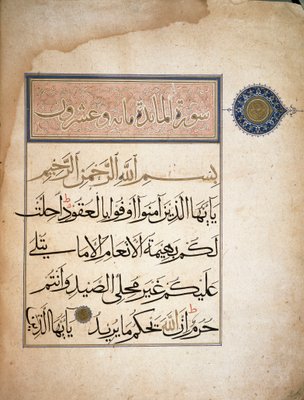 سورة المائدة مایه و عشرون
بِسْمِ اللَّهِ الرَّحْمٰنِ الرَّحِيمِ
يٰأَيُّهَا الَّذِينَ آمَنُوا أَوْفُوا بِالْعُقُودِ أُحِلَّتْ
لَكُمْ بَهِيمَةُ الْأَنْعَامِ إِلَّا مَا يُتْلَى
عَلَيْكُمْ غَيْرَ مُحِلِّي الصَّيْدِ وَأَنْتُمْ
حُرُمٌ إِنَّ اللَّهَ يَحْكُمُ مَا يُرِيدُ يٰأَيُّهَا الَّذِينَ